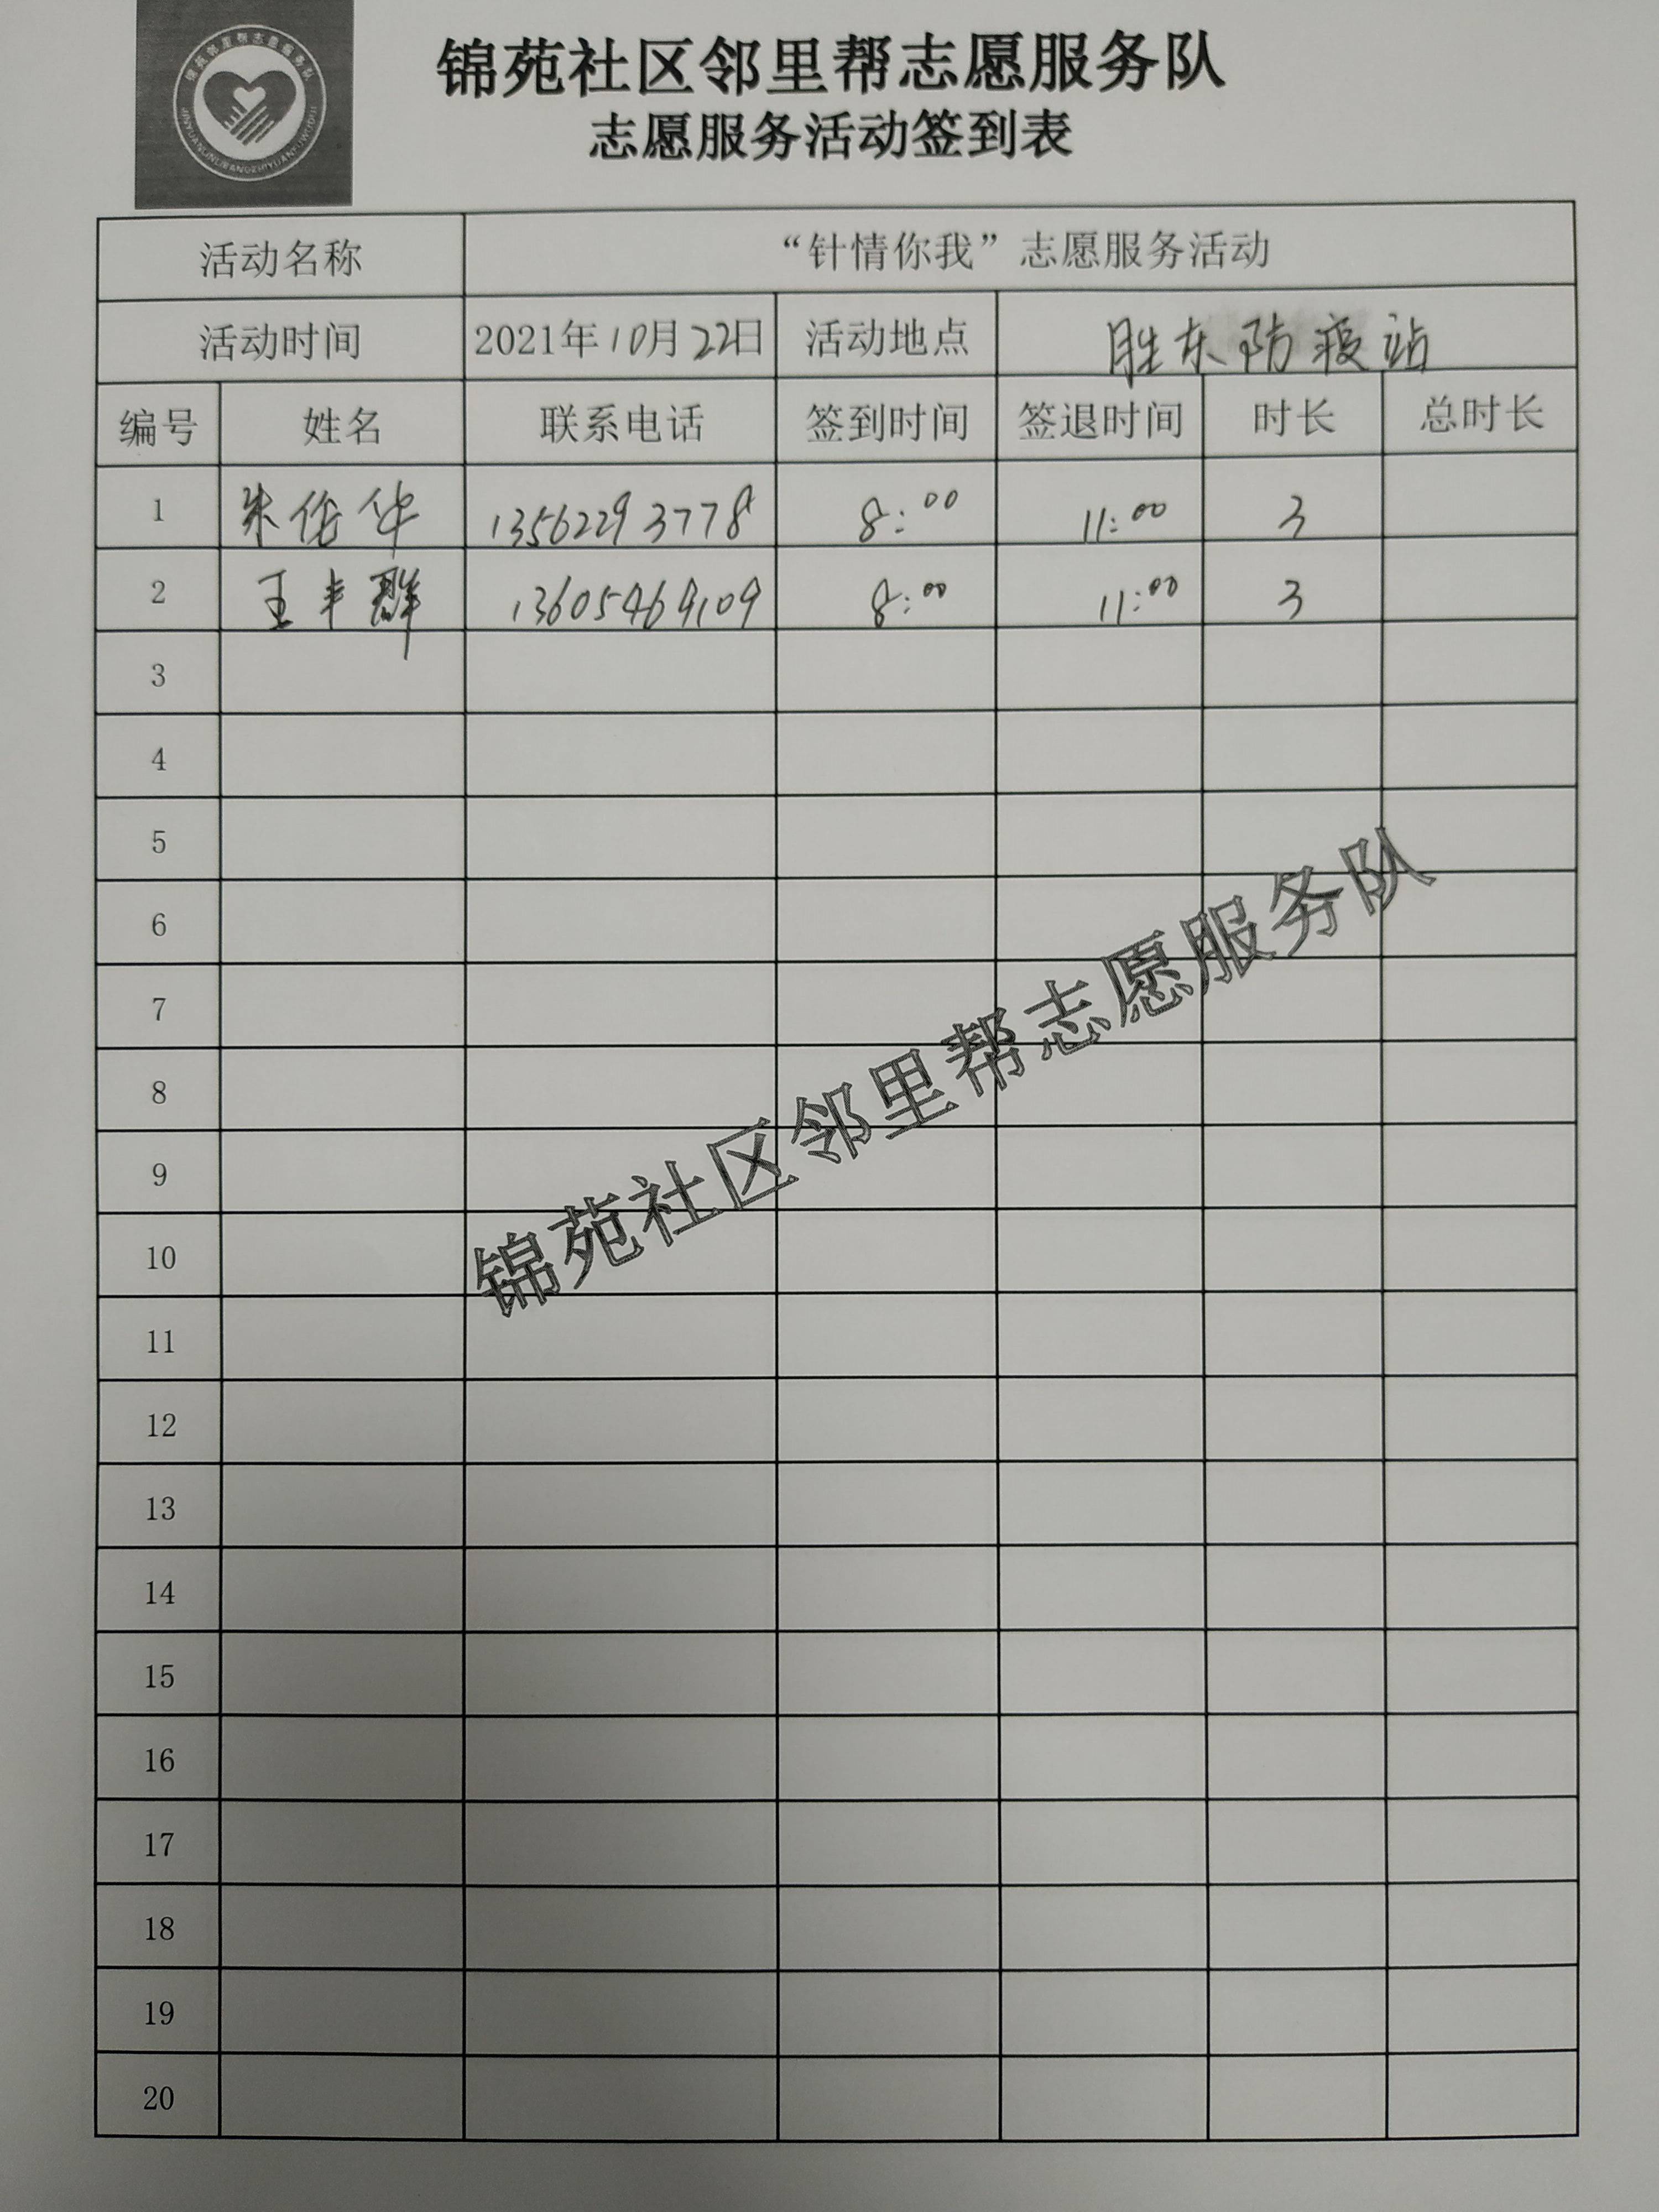 锦苑邻里帮志愿服务队
锦苑社区邻里帮志愿服务队
志愿服务活动签到表
活动名称 “针情你我”志愿服务活动
活动时间 2021年10月22日 活动地点 胜东防疫站
编号 姓名 联系电话 签到时间 签退时间 时长 总时长
1 朱华 13562293778 8:00 11:00 3
2 王丰群 13605469109 8:00 11:00 3
3
4
5
6
7
8
9
10
11
12
13
14
15
16
17
18
19
20
锦苑社区邻里帮志愿服务队